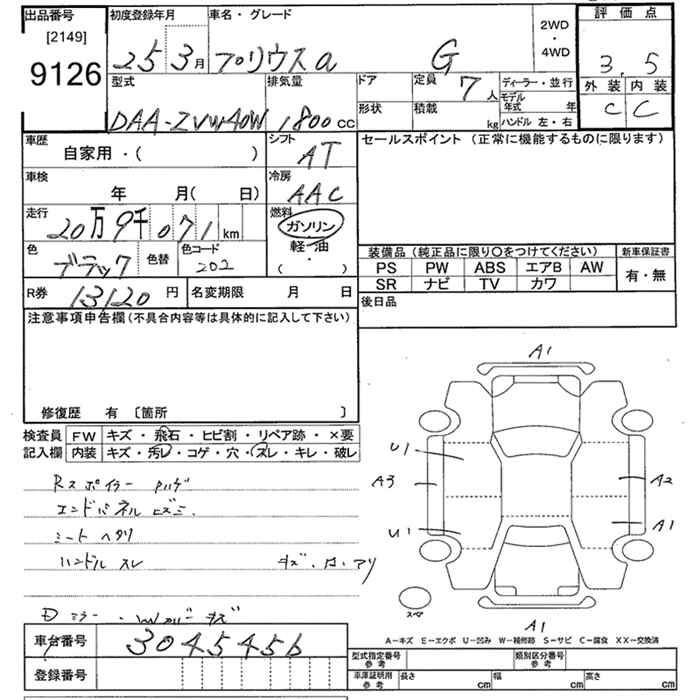 出品番号
[2149]
9126
初度登録年月
25 3月
車名・グレード
プリウスα G
2WD
・
4WD
評価点
3.5
外装 内装
C C
型式
DAA-ZVW40W
排気量
1800cc
ドア
形状
定員 7人
積載 kg
ディーラー・並行
モデル年式 年
ハンドル 左・右
車歴
自家用・( )
シフト
AT
セールスポイント (正常に機能するものに限ります)
車検
年 月( 日)
冷房
AAC
走行
20万9千071km
燃料
ガソリン
軽・油
( ・ )
色
ブラック
色替
色コード
202
装備品 (純正品に限り○をつけてください)
新車保証書
PS PW ABS エアB AW
SR ナビ TV カワ
有・無
R券 13120円
名変期限 月 日
後日品
注意事項申告欄(不具合内容等は具体的に記入して下さい)
修復歴 有 〔箇所 〕
検査員
記入欄
FW キズ・飛石・ヒビ割・リペア跡・×要
内装 キズ・汚レ・コゲ・穴・スレ・キレ・破レ
Rスポイラー ハゲ
エンドパネル ヒズミ
シートヘタリ
ハンドル スレ
キズ・凹・アリ
ミラー・キズ
A1
U1
A3
A2
U1
A1
スペア
A1
A-キズ E-エクボ U-凹み W-補修跡 S-サビ C-腐食 XX-交換済
車台番号
3045456
登録番号
型式指定番号
参考
類別区分番号
参考
車庫証明用
参考
長さ cm
幅 cm
高さ cm